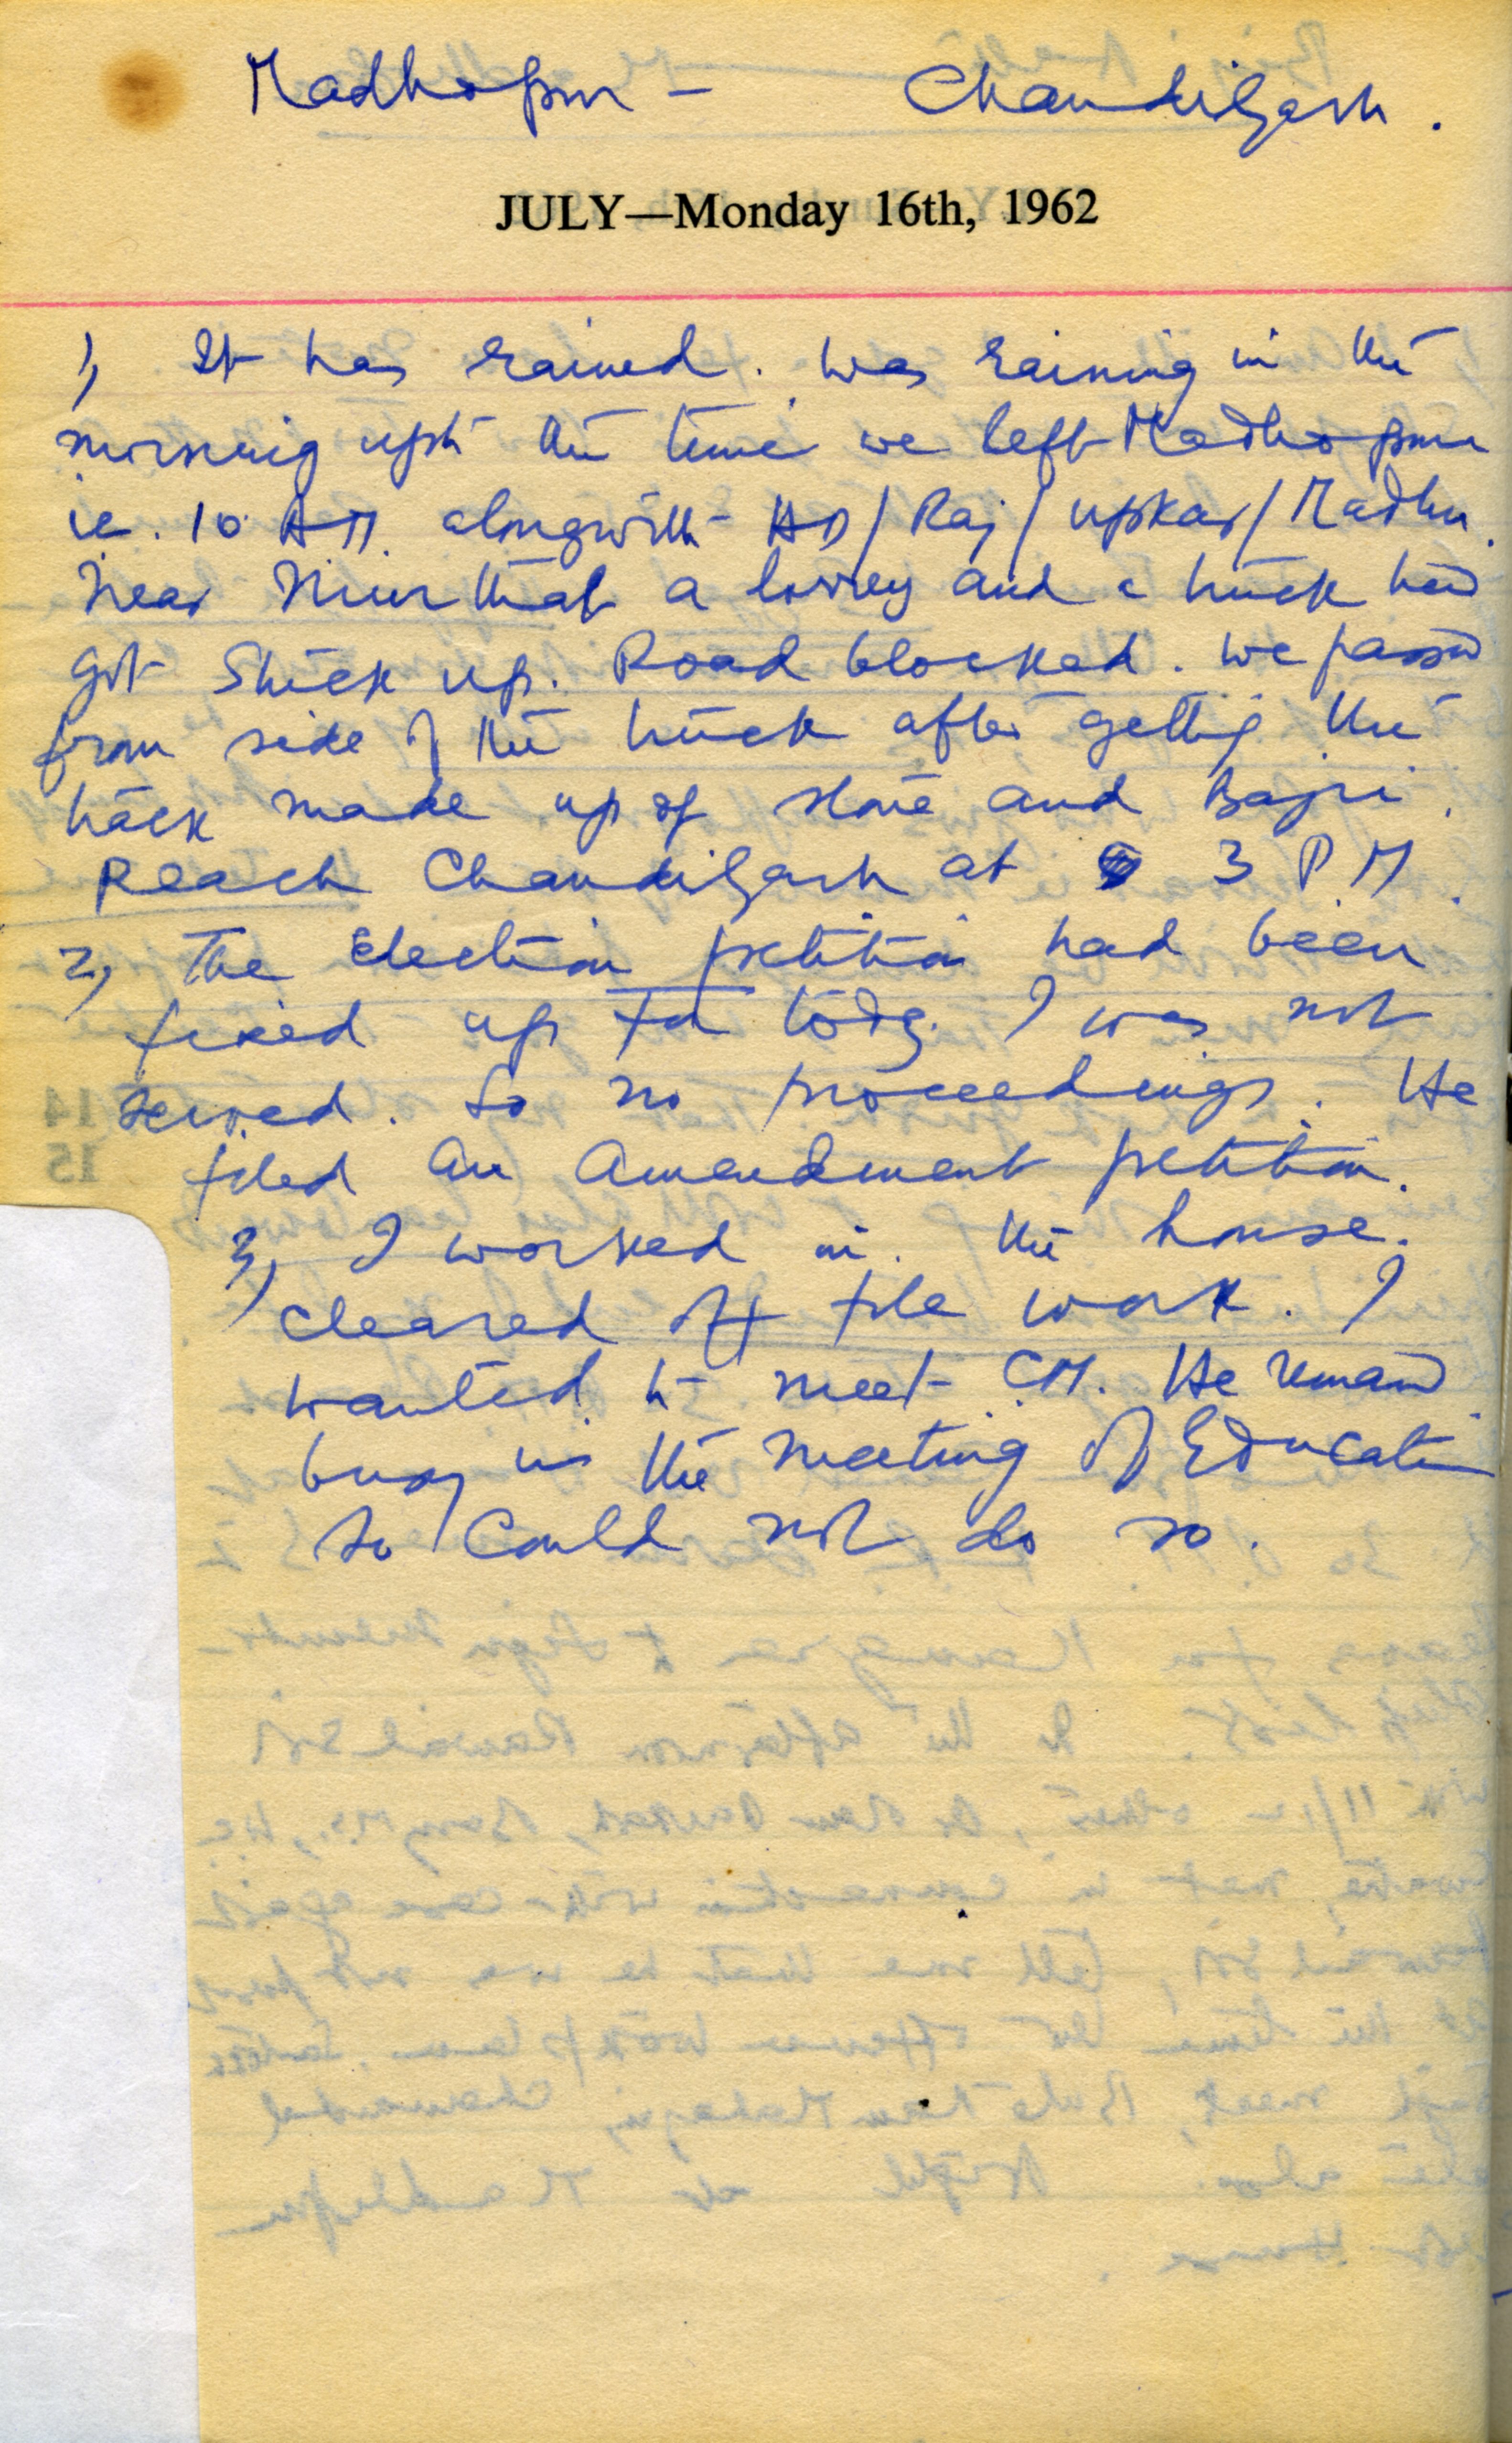 Madhopur - Chandigarh.
JULY—Monday 16th, 1962
1, It has rained. Was raining in the
morning upto the time we left Madhopur
ie. 10 AM. alongwith - / Raj / Upkar / Madhu.
Near a lorrey and a truck had
got Stuck up. Road blocked. We passed
from side of the truck after getting the
track made up of stone and Bajri.
Reach Chandigarh at 3 P.M.
2, The election petition had been
fixed up for today. I was not
served. So no proceedings. He
filed an Amendment petition.
3, I worked in the house.
cleared off file work. I
wanted to meet C.M. He remained
busy in the meeting of Education
so could not do so.